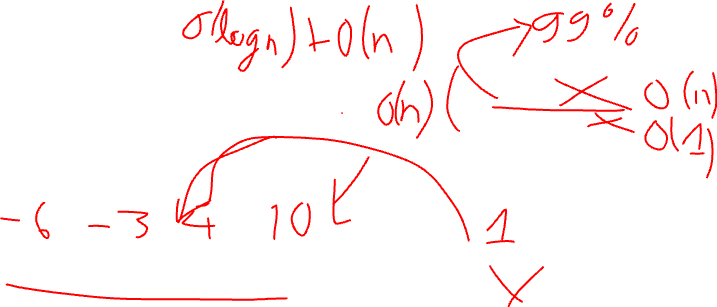 O(logn) + O(n)
99%
O(n)
O(n)
O(1)
-6 -3 4 10 1